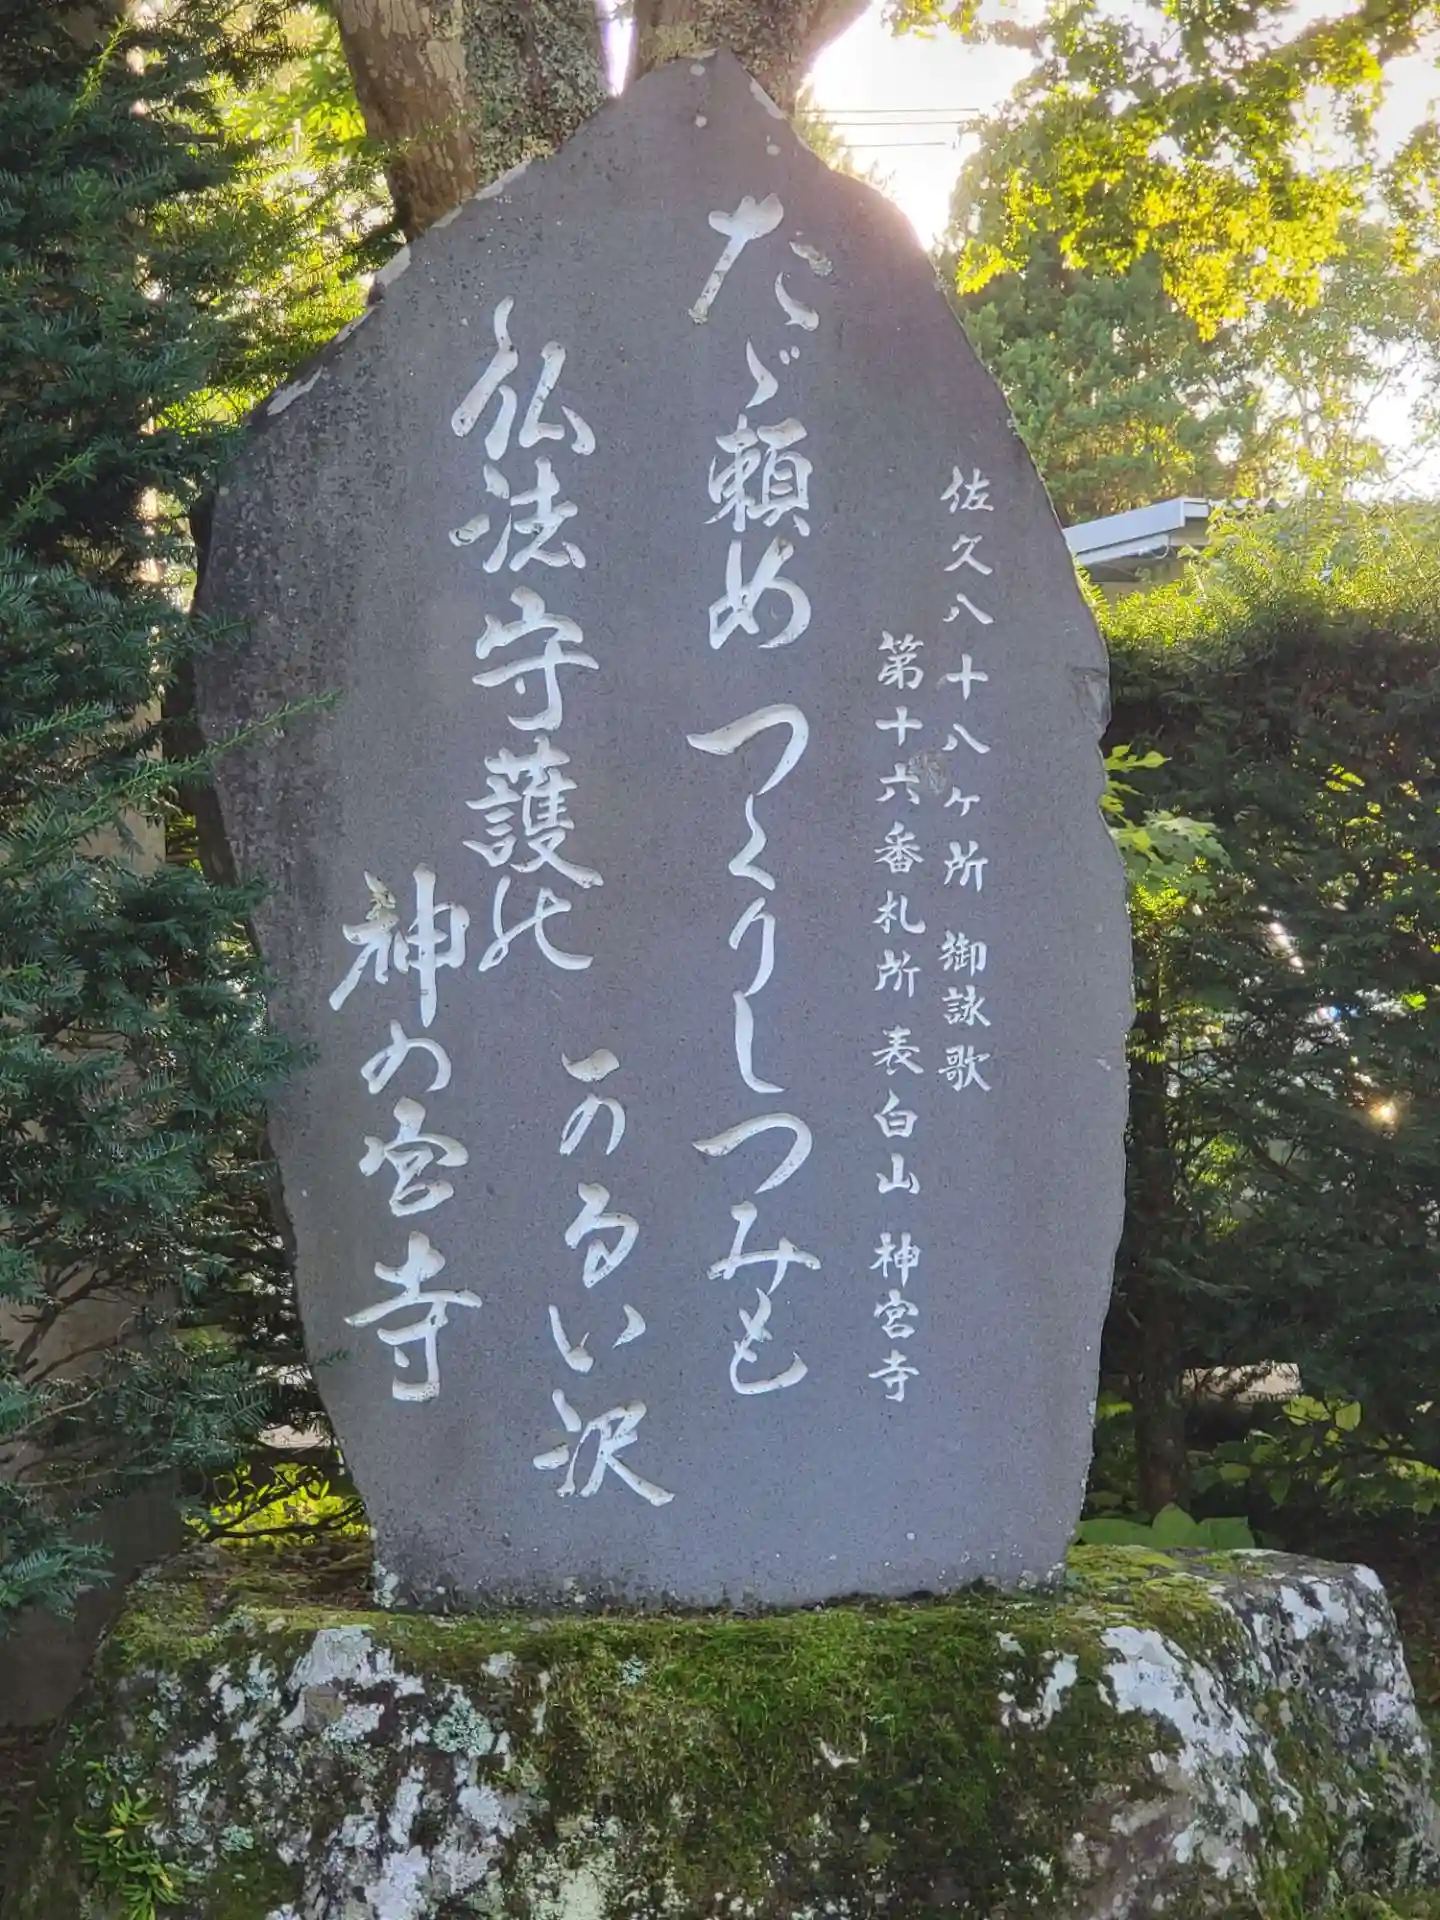 佐久八十八ヶ所 御詠歌
第十六番札所 表白山 神宮寺
たゞ頼め つくりしつみも
かるい沢
仏法守護の
神の宮寺